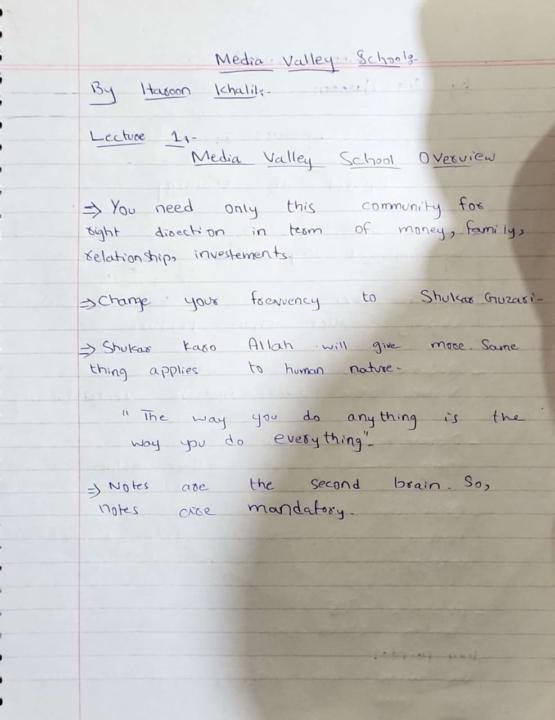 Media Valley Schools-
By Haroon Khalil:-
Lecture 1,-
Media Valley School Overview
⇒ You need only this community for
right direction in term of money, family,
relationship, investements.
⇒ Change your frequency to Shukar Guzari-
⇒ Shukar Karo Allah will give more. Same
thing applies to human nature-
" The way you do anything is the
way you do everything"-
⇒ Notes are the second brain. So,
notes are mandatory-